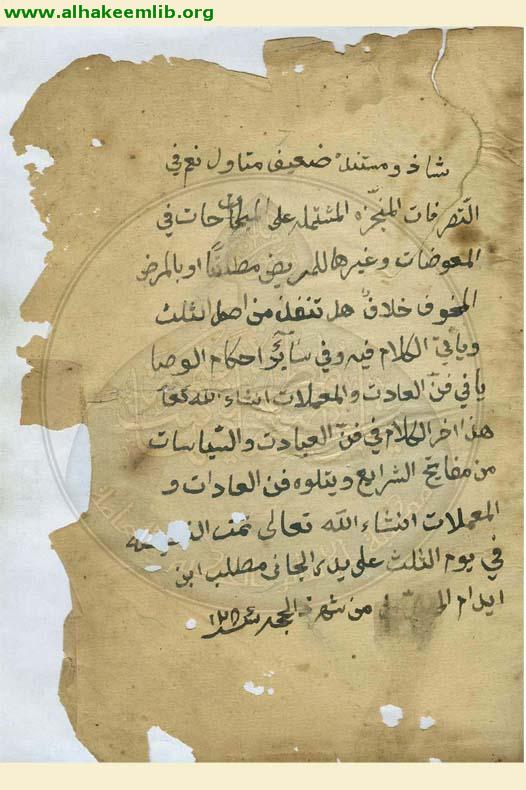 www.alhakeemlib.org
شاذ ومستنده ضعيف متاول نعم في
التصرفات المنجزه المشتمله على المحابات في
المعوضات وغيرها للمريض مطلقًا او بالمرض
المخوف خلافٌ هل تنفذ من اصل الثلث
وياتي الكلام فيه وفي سآئر احكام الوصا
يا في فن العادت والمعملات انشاء الله تعا
هذا اخر الكلام في فن العبادت والسياسات
من مفاتيح الشرايع ويتلوه فن العادات و
المعملات انشاء الله تعالى تمت
في يوم الثلث على يد الجانى مطلب ابن
من شهر